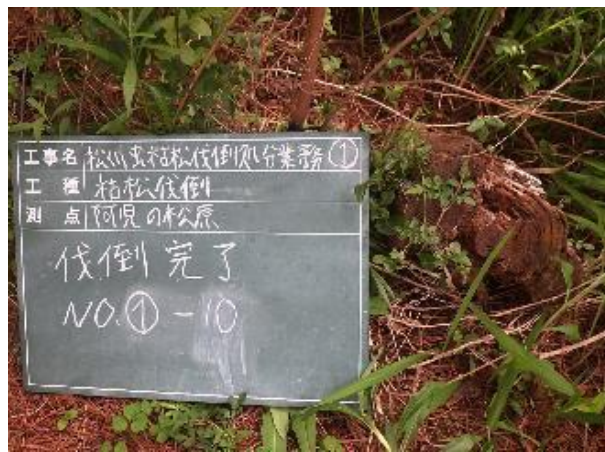 工事名 松くい虫枯松伐倒処分業務①
工種 枯松伐倒
測点 阿児の松原
伐倒完了
NO.①-10